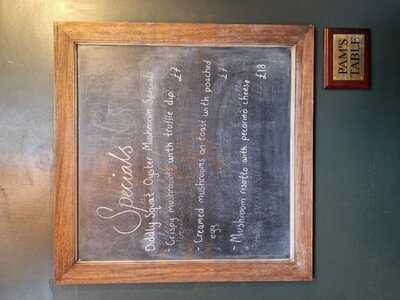 Specials
Diddly Squat Oyster Mushroom Specials
- Crispy mushrooms with truffle dip £7
- Creamed mushrooms on toast with poached £7
egg
- Mushroom risotto with pecorino cheese £18
PAM'S
TABLE